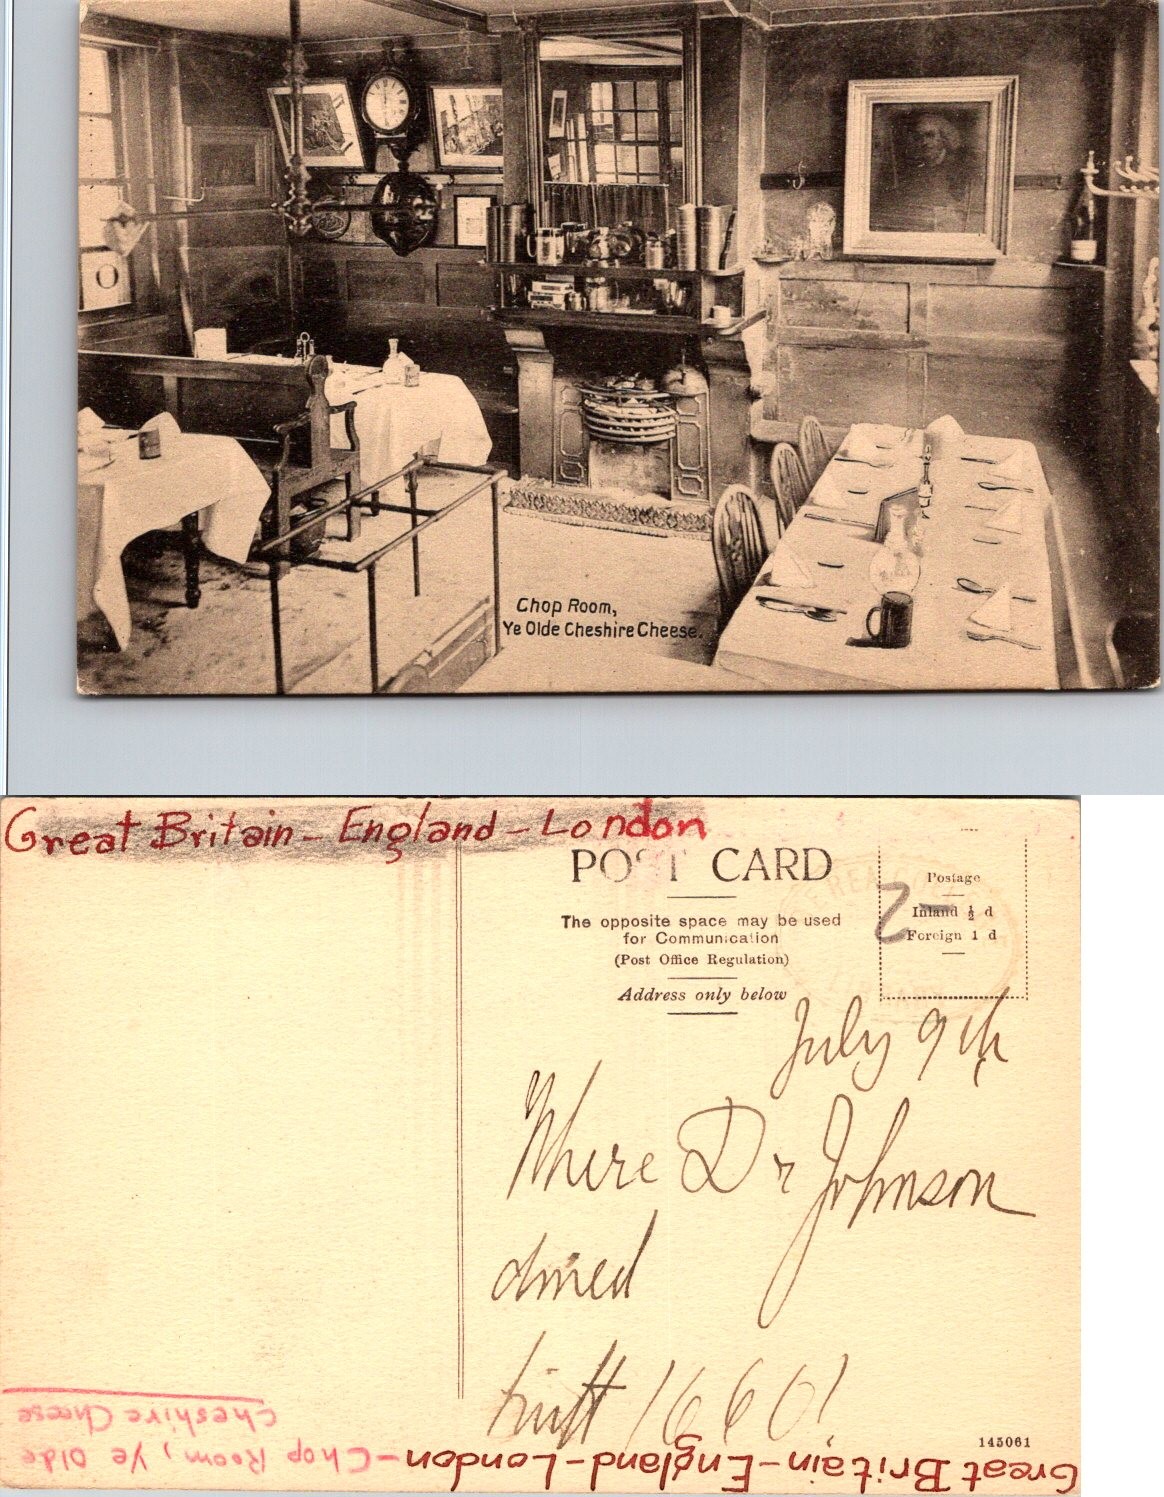 Chop Room,
Ye Olde Cheshire Cheese.
Great Britain - England - London
POST CARD
The opposite space may be used
for Communication
(Post Office Regulation)
Address only below
Postage
Inland ½ d
Foreign 1 d
2-
July 9th
Where Dr Johnson
dined
built 1660!
145061
Great Britain - England - London - Chop Room, Ye Olde
Cheshire Cheese